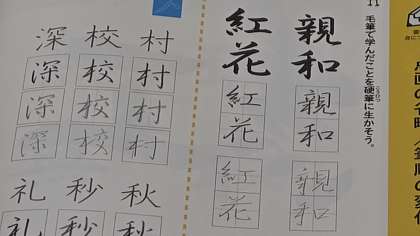 11
毛筆で学んだことを硬筆に生かそう。
親和
親和
親和
紅花
紅花
紅花
村 校 深
村 校 深
村 校 深
村 校 深
秋 秒 礼
秋 秒 礼